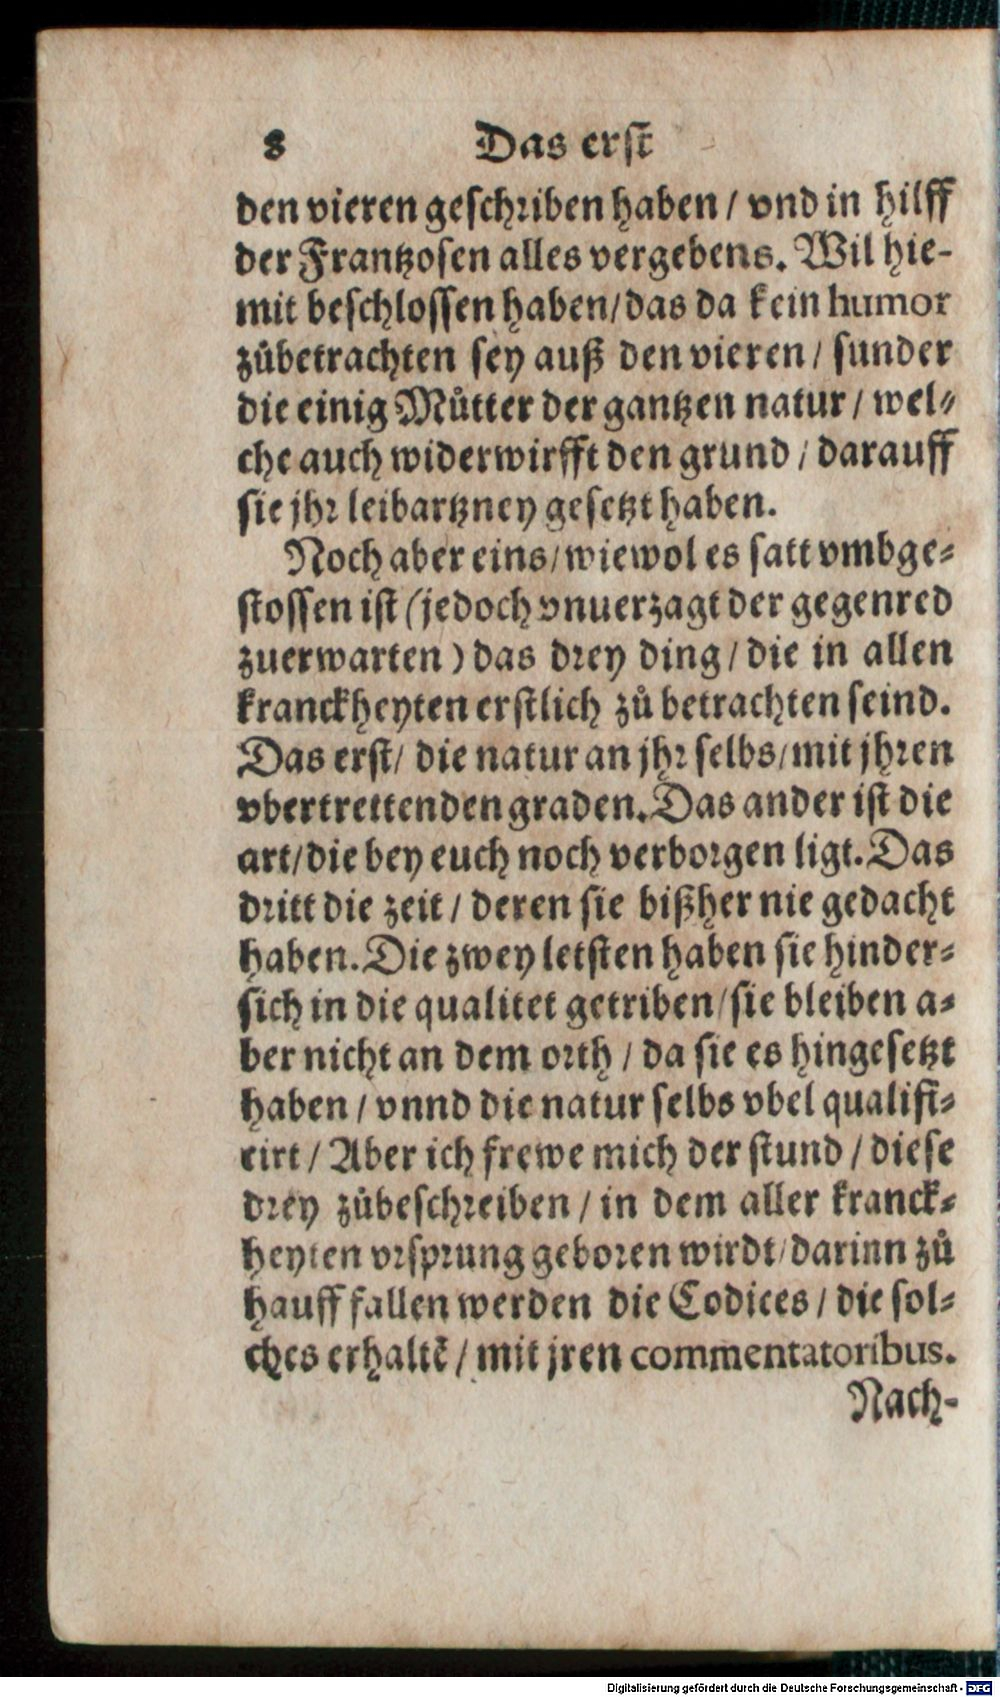 8 Das erst
den vieren geschriben haben / vnd in hilff
der Frantzosen alles vergebens. Wil hie-
mit beschlossen haben/das da kein humor
zůbetrachten sey auß den vieren / sunder
die einig Můtter der gantzen natur / wel-
che auch widerwirfft den grund / darauff
sie jhr leibartzney gesetzt haben.
Noch aber eins/wiewol es satt vmbge-
stossen ist (jedoch vnuerzagt der gegenred
zuerwarten) das drey ding / die in allen
kranckheyten erstlich zů betrachten seind.
Das erst/ die natur an jhr selbs/mit jhren
vbertrettenden graden. Das ander ist die
art/die bey euch noch verborgen ligt. Das
dritt die zeit / deren sie bißher nie gedacht
haben. Die zwey letsten haben sie hinder-
sich in die qualitet getriben/sie bleiben a-
ber nicht an dem orth / da sie es hingesetzt
haben / vnnd die natur selbs vbel qualifi-
cirt / Aber ich frewe mich der stund / diese
drey zůbeschreiben / in dem aller kranck-
heyten vrsprung geboren wirdt/darinn zů
hauff fallen werden die Codices / die sol-
ches erhaltē / mit jren commentatoribus.
Nach-
Digitalisierung gefördert durch die Deutsche Forschungsgemeinschaft - DFG